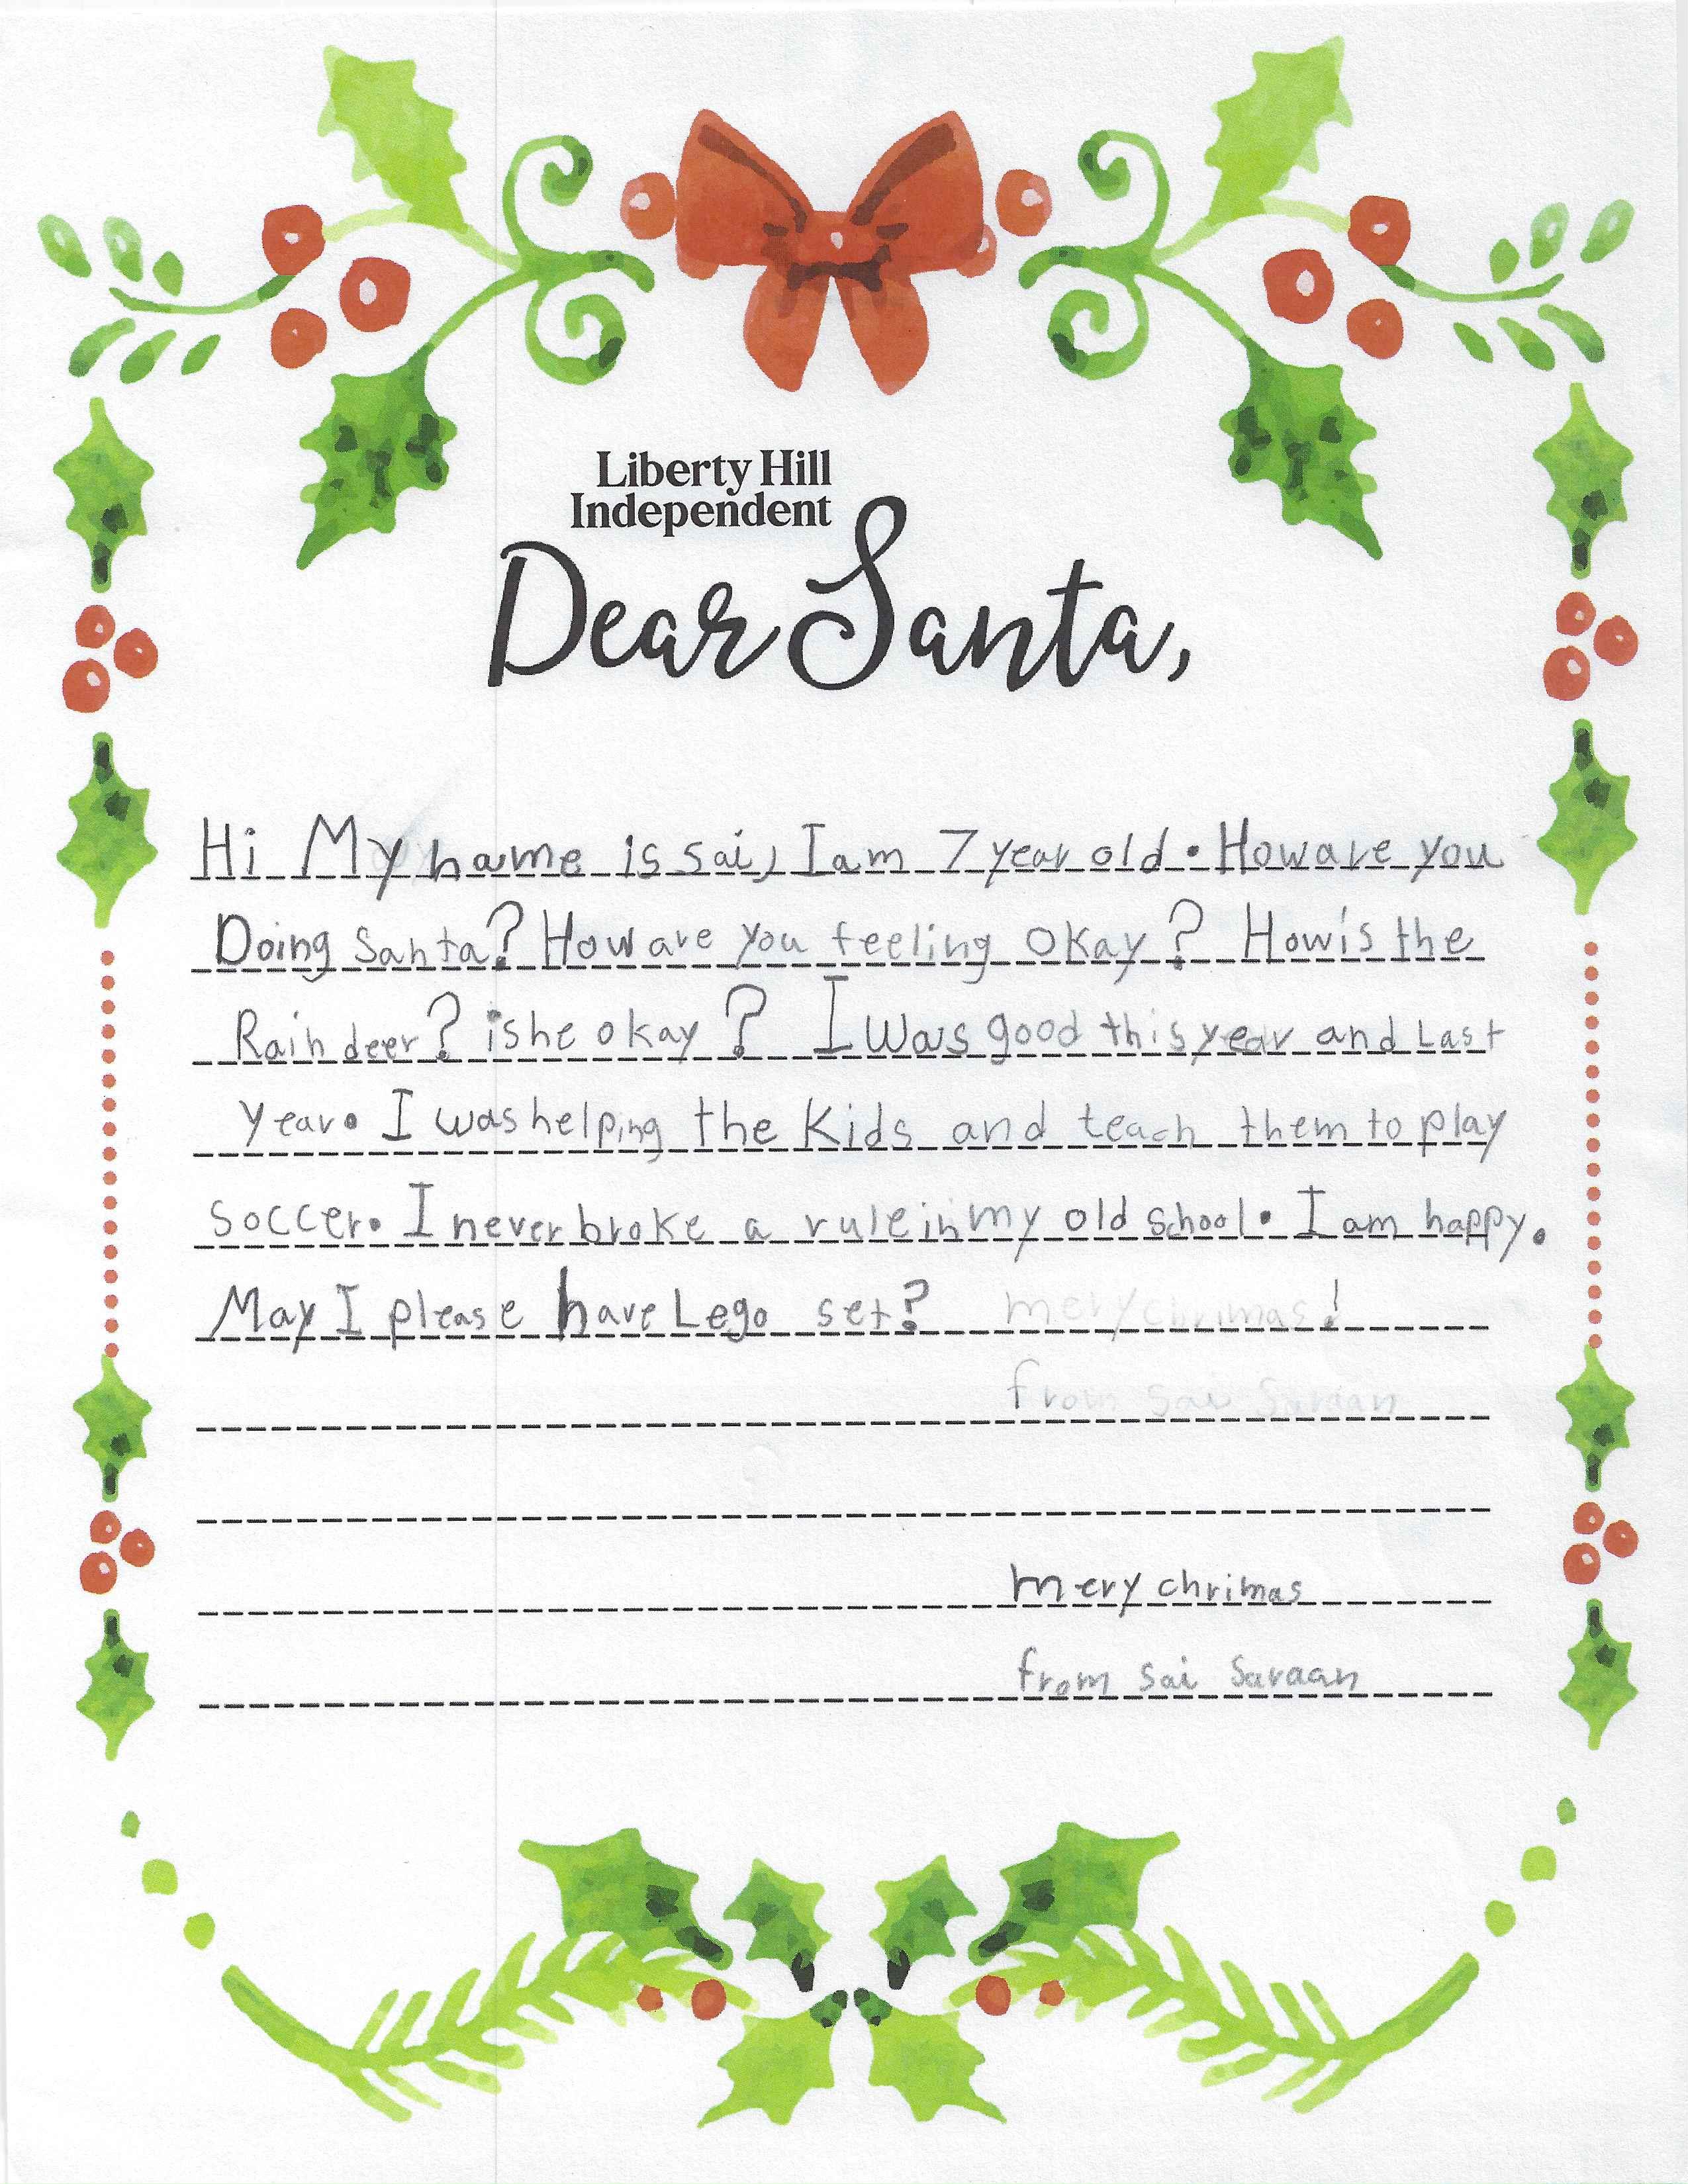 Liberty Hill
Independent
Dear Santa,
Hi My name is sai, I am 7 year old. How are you
Doing Santa? How are you feeling okay? How is the
Rain deer? is he okay? I was good this year and Last
year. I was helping the kids and teach them to play
soccer. I never broke a rule in my old school. I am happy.
May I please have Lego set? mery chrimas!
from sai Saraan
mery chrimas
from sai Saraan